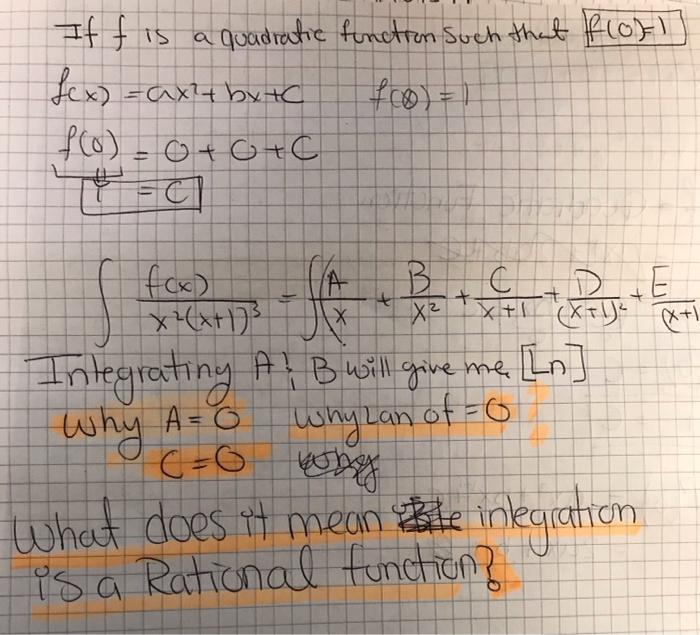 If f is a quadratic function such that f(0)=1
f(x) = ax²+bx+c f(0) = 1
f(0) = 0+0+C
1 = C
∫ f(x) / x²(x+1)³ = ∫(A/x + B/x² + C/x+1 + D/(x+1)² + E/(x+1
Integrating A & B will give me [Ln]
why A=0 why Lan of =0 ?
C=0
What does it mean integration
is a Rational function?